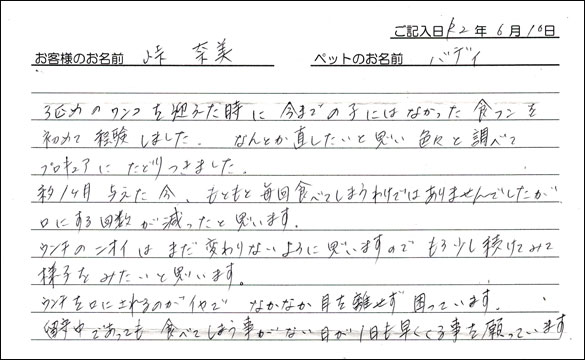 ご記入日 R2 年 6 月 10日
お客様のお名前 峠 奈美 ペットのお名前 バディ
3匹力のワンコを迎えた時に今までの子にはなかった食フンを
初めて経験しました。なんとか直したいと思い色々と調べて
プロキュアにたどりつきました。
約1ヶ月与えた今、もともと毎回食べてしまうわけではありませんでしたが
口にする回数が減ったと思います。
ウンチのニオイはまだ変わりないように思いますのでもう少し続けてみて
様子をみたいと思います。
ウンチを口に入れるのがイヤでなかなか目を離せず困っています。
留守中であっても食べてしまう事がない日が1日も早くくる事を願っています